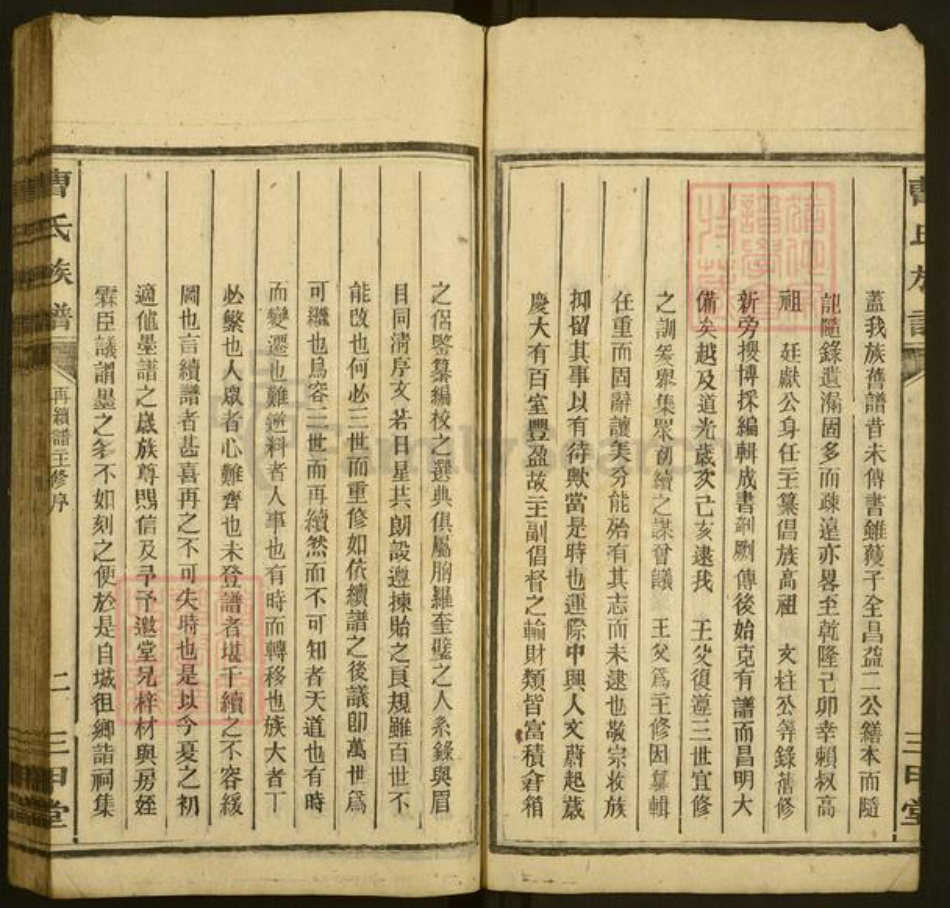 蓋我族舊譜昔未傳書雖獲子全昌益二公繕本而隨
記隨錄遺漏固多而疎遠亦畧至乾隆己卯幸賴叔高
祖 廷獻公身任主纂倡族高祖 文柱公等錄舊修
新旁搜博採編輯成書剞劂傳後始克有譜而昌明大
備矣越及道光歲亥己亥逮我 王父復遵三世宜修
之訓爰聚集眾初續之謀僉議 王父為主修因纂輯
任重而固辭讓美分能殆有其志而未逮也敬宗收族
抑留其事以有待歟當是時也運際中興人文蔚起歲
慶大有百室豐盈故主副倡督之輸財類皆富積倉箱
之侶鑒纂編校之選典俱屬胸羅奎璧之人系錄與眉
目同清序文若日星共朗設遵揀貽之頁規雖百世不
能改也何必三世而重修如依續譜之後議卽萬世為
可繼也烏容三世而再續然而不可知者天道也有時
而變遷也難逆料者人事也有時而轉移也族大者丁
必繁也人眾者心難齊也未登譜者堪千續之不容緩
圖也言續譜者甚喜再之不可失時也是以今夏之初
適值墨譜之歲族尊熙信及予予邀堂兄梓材與房姪
霖臣議謂墨之多不如刻之便於是自城徂鄉詣祠集
曹氏族譜
再續譜主修序
二
三甲堂